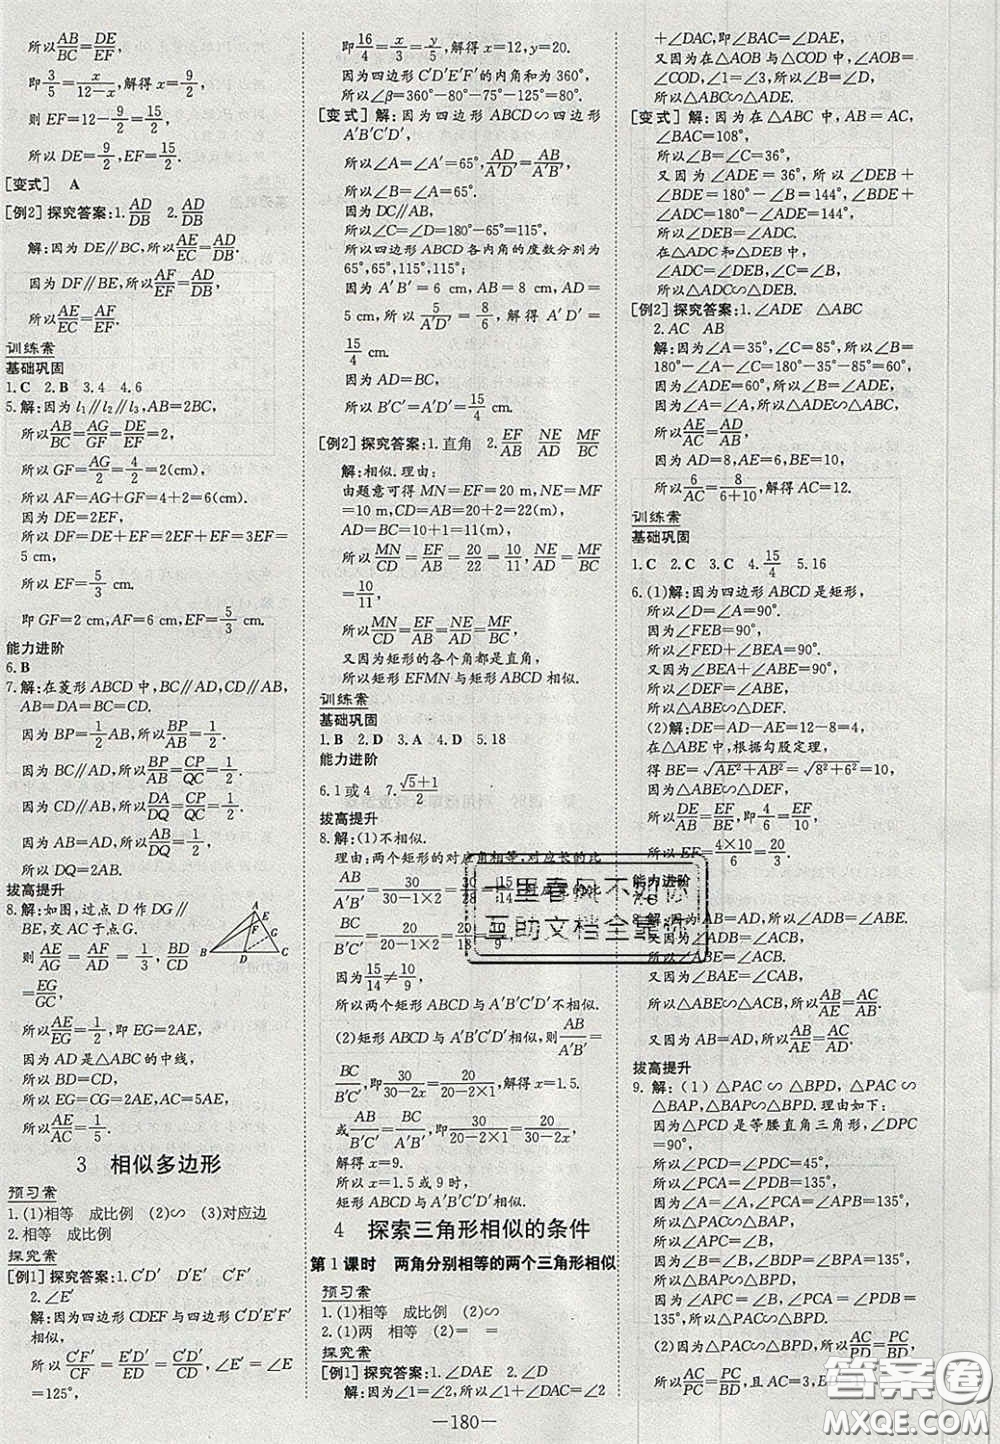 所以AB/BC=DE/EF.
即3/5=x/(12-x),解得x=9/2.
则EF=12-9/2=15/2.
所以DE=9/2,EF=15/2.
[变式] A
[例2]探究答案:1.AD/DB 2.AD/DB
解:因为DE∥BC,所以AE/EC=AD/DB.
因为DF∥BE,所以AF/EF=AD/DB,
所以AE/EC=AF/EF.
训练案
基础巩固
1.C 2.B 3.4 4.6
5.解:因为l₁∥l₂∥l₃,AB=2BC,
所以AB/BC=AG/GF=DE/EF=2,
所以GF=AG/2=4/2=2(cm),
所以AF=AG+GF=4+2=6(cm).
因为DE=2EF,
所以DF=DE+EF=2EF+EF=3EF=
5 cm,
所以EF=5/3 cm.
即GF=2 cm,AF=6 cm,EF=5/3 cm.
能力进阶
6.B
7.解:在菱形ABCD中,BC∥AD,CD∥AB,
AB=DA=BC=CD.
因为BP=1/2AB,所以BP/AB=1/2.
因为BC∥AD,所以BP/AB=CP/QC=1/2.
因为CD∥AB,所以DA/DQ=CP/QC=1/2.
所以AB/DQ=1/2.
所以DQ=2AB.
拔高提升
8.解:如图,过点D作DG∥
BE,交AC于点G.
则AE/AG=AF/AD=1/3,BD/CD
=EG/GC,
所以AE/EG=1/2,即EG=2AE,
因为AD是△ABC的中线,
所以BD=CD,
所以EG=GC=2AE,AC=5AE,
所以AE/AC=1/5.
3 相似多边形
预习案
1.(1)相等 成比例 (2)∽ (3)对应边
2.相等 成比例
探究案
[例1]探究答案:1.C'D' E'D' C'F'
2.∠E'
解:因为四边形CDEF与四边形C'D'E'F'
相似,
所以C'F'/CF=E'D'/ED=C'D'/CD,∠E'=∠E
=125°,
即16/4=x/3=y/5,解得x=12,y=20.
因为四边形C'D'E'F'的内角和为360°,
所以∠β=360°-80°-75°-125°=80°.
[变式]解:因为四边形ABCD∽四边形
A'B'C'D',
所以∠A=∠A'=65°,AD/A'D'=AB/A'B'.
所以∠B=∠A=65°.
因为DC∥AB,
所以∠C=∠D=180°-65°=115°.
所以四边形ABCD各内角的度数分别为
65°,65°,115°,115°;
因为A'B'=6 cm,AB=8 cm,AD=
5 cm,所以5/A'D'=8/6,解得A'D'=
15/4 cm.
因为AD=BC,
所以B'C'=A'D'=15/4 cm.
[例2]探究答案:1.直角 2.EF/AB NE/AD MF/BC
解:相似.理由:
由题意可得MN=EF=20 m,NE=MF
=10 m,CD=AB=20+2=22(m),
AD=BC=10+1=11(m),
所以MN/CD=EF/AB=20/22=10/11,NE/AD=MF/BC=
10/11,
所以MN/CD=EF/AB=NE/AD=MF/BC.
又因为矩形的各个角都是直角,
所以矩形EFMN与矩形ABCD相似.
训练案
基础巩固
1.B 2.D 3.A 4.D 5.18
能力进阶
6.1或4 7.(√5+1)/2
拔高提升
8.解:(1)不相似.
理由:两个矩形的对应角相等,对应长的比
AB/A'B'=30/(30-2)=30/28=15/14,对应宽的比
BC/B'C'=20/(20-1×2)=20/18=10/9.
因为15/14≠10/9,
所以两个矩形ABCD与A'B'C'D'不相似.
(2)矩形ABCD与A'B'C'D'相似,则AB/A'B'=
BC/B'C',即30/(30-2x)=20/(20-2×1),解得x=1.5.
或AB/B'C'=BC/A'B',即30/(20-2×1)=20/(30-2x),
解得x=9.
所以x=1.5或9时,
矩形ABCD与A'B'C'D'相似.
4 探索三角形相似的条件
第1课时 两角分别相等的两个三角形相似
预习案
1.(1)相等 成比例 (2)∽
2.(1)两 相等 (2)= =
探究案
[例1]探究答案:1.∠DAE 2.∠D
解:因为∠1=∠2,所以∠1+∠DAC=∠2
+∠DAC,即∠BAC=∠DAE.
又因为在△AOB与△COD中,∠AOB=
∠COD,∠1=∠3,所以∠B=∠D,
所以△ABC∽△ADE.
[变式]解:因为在△ABC中,AB=AC,
∠BAC=108°,
所以∠B=∠C=36°,
又因为∠ADE=36°,所以∠DEB+
∠BDE=180°-∠B=144°,∠ADC+
∠BDE=180°-∠ADE=144°,
所以∠DEB=∠ADC,
在△ADC与△DEB中,
∠ADC=∠DEB,∠B=∠C,
所以△ADC∽△DEB.
[例2]探究答案:1.∠ADE △ABC
2.AC AB
解:因为∠A=35°,∠C=85°,所以∠B=
180°-∠A-∠C=180°-35°-85°=60°.
因为∠ADE=60°,所以∠B=∠ADE.
因为∠A=∠A,所以△ADE∽△ABC,
所以AE/AC=AD/AB.
因为AD=8,AE=6,BE=10,
所以6/AC=8/(6+10),解得AC=12.
训练案
基础巩固
1.C 2.C 3.C 4.15/4 5.16
6.(1)解:因为四边形ABCD是矩形,
所以∠D=∠A=90°.
因为∠FEB=90°,
所以∠FED+∠BEA=90°.
又因为∠BEA+∠ABE=90°,
所以∠DEF=∠ABE,
所以△ABE∽△DEF.
(2)解:DE=AD-AE=12-8=4,
在△ABE中,根据勾股定理,
得BE=√(AE²+AB²)=√(8²+6²)=10.
因为△ABE∽△DEF,
所以AB/DE=BE/EF,即4/6=EF/10,
所以EF=(4×10)/6=20/3.
能力进阶
所以△ABE∽△ACB,所以AB/AC=AE/AB.
又因为AB=AD,所以AE/AD=AD/AC.
拔高提升
9.解:(1)△PAC∽△BPD,△PAC∽
△BAP,△BAP∽△BPD.理由如下:
因为△PCD是等腰直角三角形,∠DPC
=90°,
所以∠PCD=∠PDC=45°,
所以∠PCA=∠PDB=135°.
因为∠A=∠A,∠PCA=∠APB=135°,
所以△PAC∽△BAP.
因为∠B=∠B,∠APB=∠PDB=
135°,所以△BAP∽△BPD,
所以△PAC∽△BPD.
(2)因为△PAC∽△BPD,所以AC/PD=PC/BD,
所以AC/PC=PD/BD,且AC=3,BD=1,
—180—
十里春风不如你
互助文档全靠你
答案圈
MXQE.COM